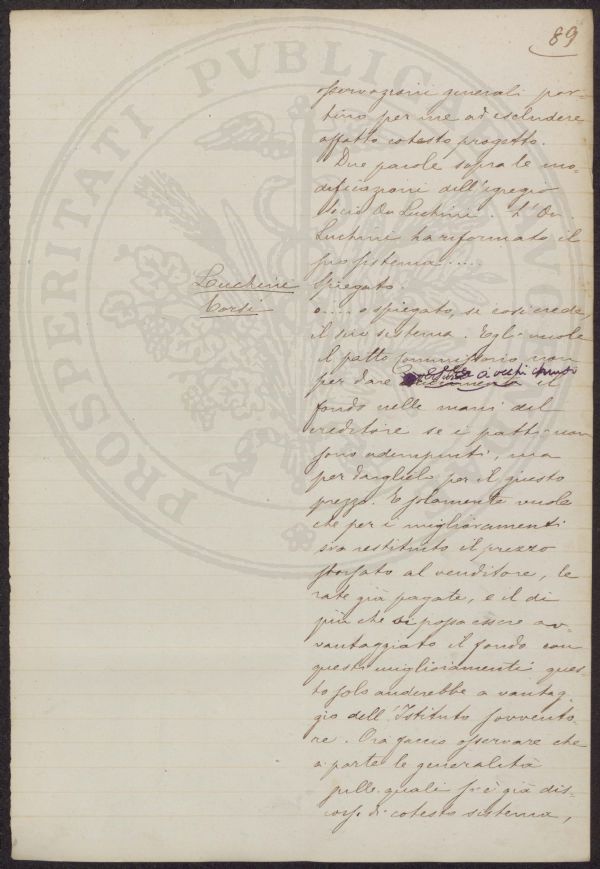 89
osservazioni generali por-
tino per me ad escludere
affatto cotesto progetto.
Due parole sopra le mo-
dificazioni dell'egregio
Socio On Luchini. L'On.
Luchini ha riformato il
suo sistema....
Luchini
Spiegato.
Corsi
o.... o spiegato, se così crede,
il suo sistema. Egli vuole
il patto Commissorio non
per dare a occhi chiusi il
fondo nelle mani del
creditore se i patti non
sono adempiuti, ma
per darglielo per il giusto
prezzo. E solamente vuole
che per i miglioramenti
sia restituito il prezzo
sborsato al venditore, le
rate già pagate, e il di
più che si possa essere av-
vantaggiato il fondo con
questi miglioramenti ques-
to solo anderebbe a vantag-
gio dell'Istituto sovvento-
re. Ora faccio osservare che
a parte le generalità
sulle quali si è già dis-
corso di cotesto sistema,
PROSPERITATI PVBLICAE